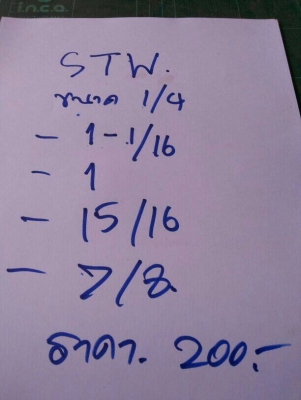 inco
STW.
ขนาด 1/4
- 1-1/16
- 1
- 15/16
- 7/8
ราคา. 200.-